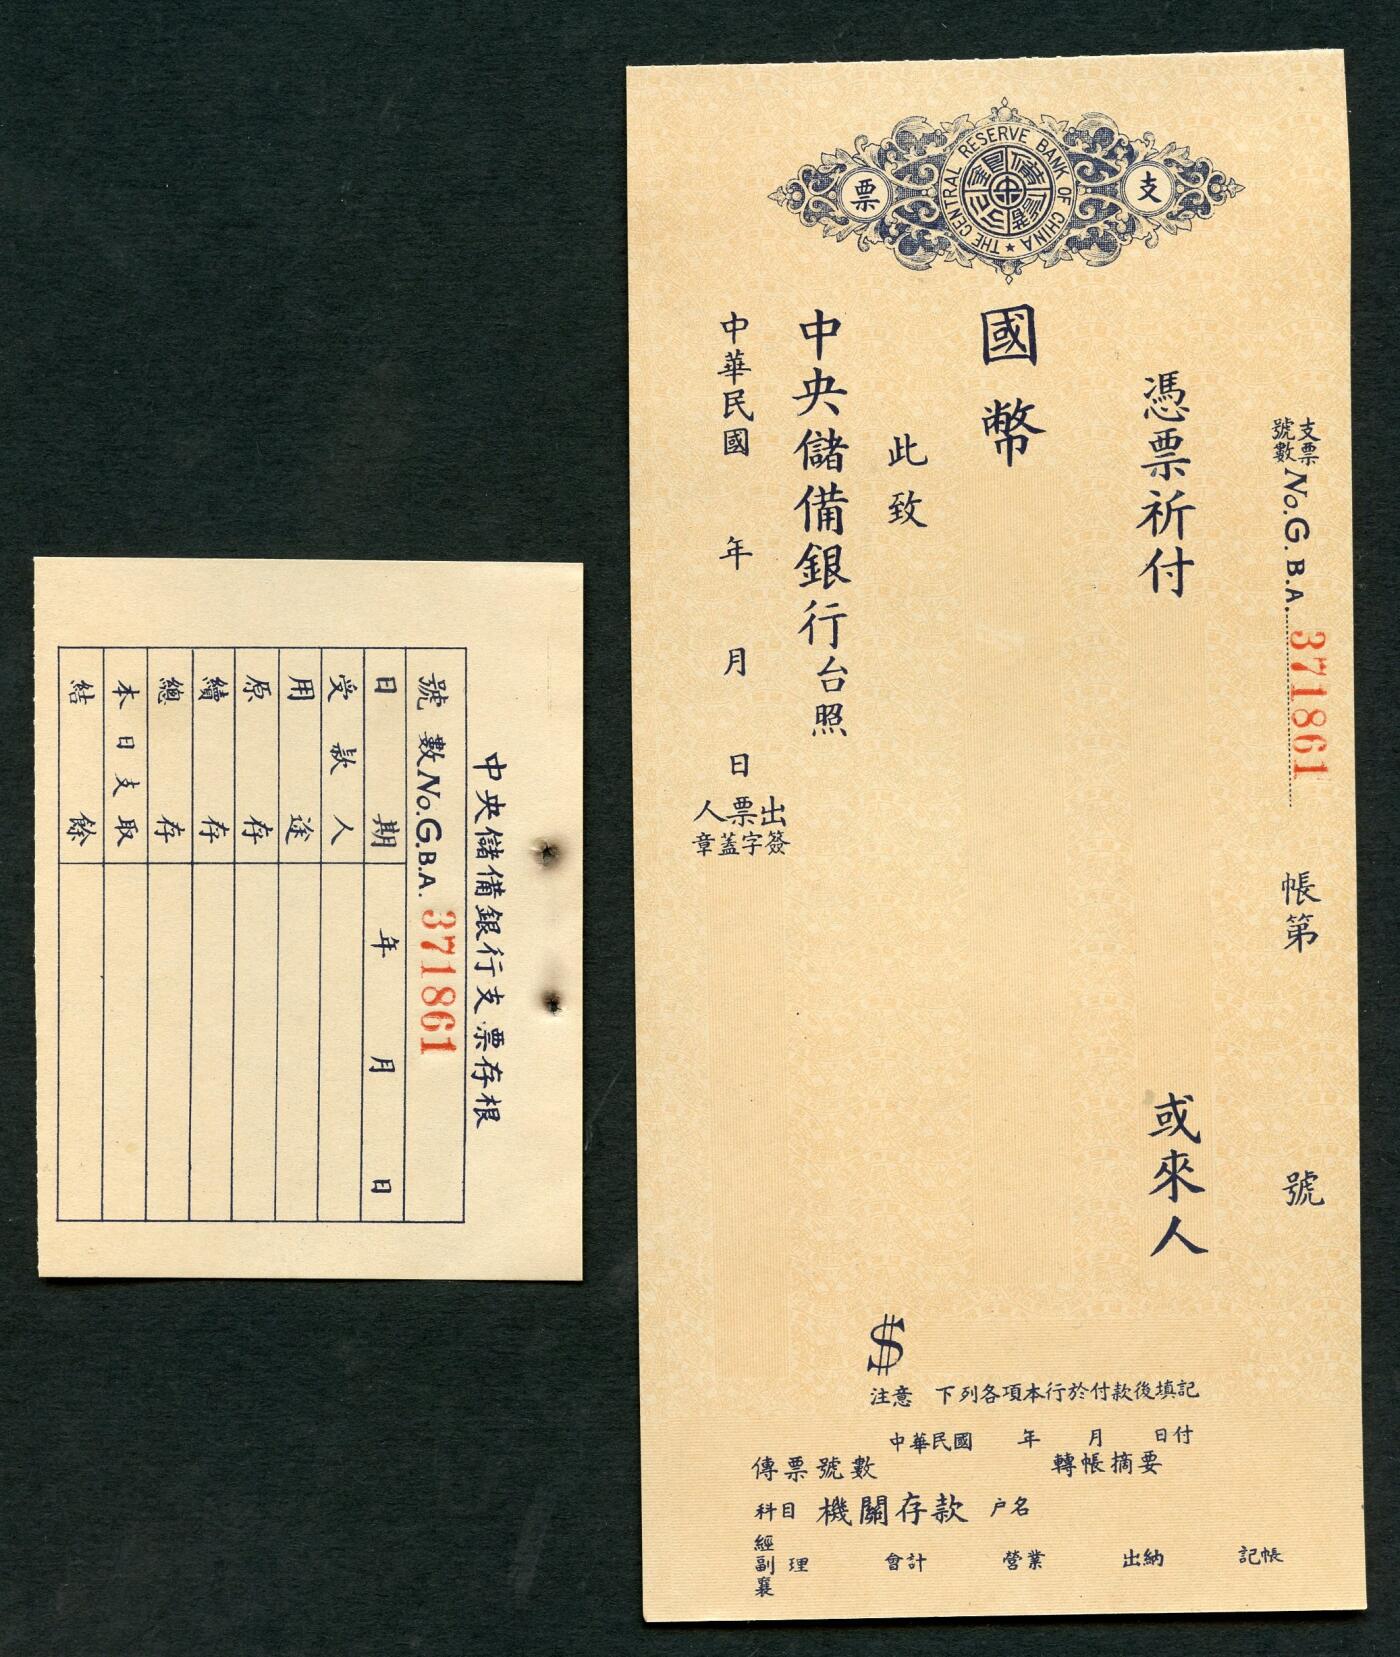 中央儲備銀行支票存根
號數No.G.B.A. 371861
日期 年 月 日
受款人
用途
原存
續存
總存
本日支取
結餘
支票
THE CENTRAL RESERVE BANK OF CHINA
支票號數No.G.B.A. 371861 帳第 號
憑票祈付 或來人
國幣
$
此致
中央儲備銀行台照
中華民國 年 月 日
出票人
簽字蓋章
注意 下列各項本行於付款後填記
中華民國 年 月 日付
傳票號數 轉帳摘要
科目 機關存款 戶名
經副襄理 會計 營業 出納 記帳